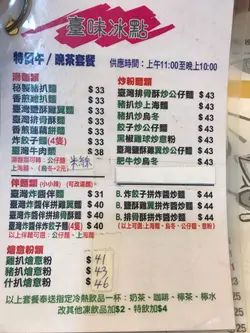 臺味冰點
特價午/晚茶套餐
供應時間：上午11:00至晚上10:00
湯麵類
秘製豬扒麵 $33
香煎雞扒麵 $33
臺灣鹽酥雞翼麵 $33
臺灣排骨酥麵 $33
香煎蓮藕餅麵 $33
炸餃子麵(4隻) $33
臺灣牛肉麵 $38
伴麵類
臺灣炸醬伴麵 $31
臺灣炸醬伴炸餃子麵(4隻) $40
臺灣炸醬伴拼排骨酥麵 $44
以上伴麵可選：公仔麵、上海麵
燴意粉類
雞扒燴意粉 $41
豬扒燴意粉 $43
什扒燴意粉 $46
炒粉麵類
臺灣排骨酥炒公仔麵 $43
豬扒炒上海麵 $43
豬扒炒烏冬 $43
餃子炒公仔麵 $43
黑椒雞球炒意粉 $43
臺灣鹽酥雞翼炒公仔麵 $43
肥牛炒烏冬 $43
A. 餃子拼炸醬炒麵 $44
B. 鹽酥雞翼拼炸醬炒麵 $44
C. 排骨酥拼炸醬炒麵 $44
以上套餐奉送指定冷熱飲品一杯：奶茶、咖啡、檸茶、檸水
改其他凍飲品加$2、特飲加$4